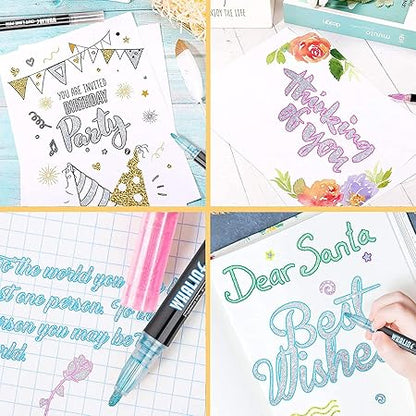 YOU ARE INVITED
BIRTHDAY
Party
ENJOY THE LIFE
thinking
of you
To the world you
st one person. To
erson you may be
rld.
WHALINE
Dear Santa
Best
Wishes